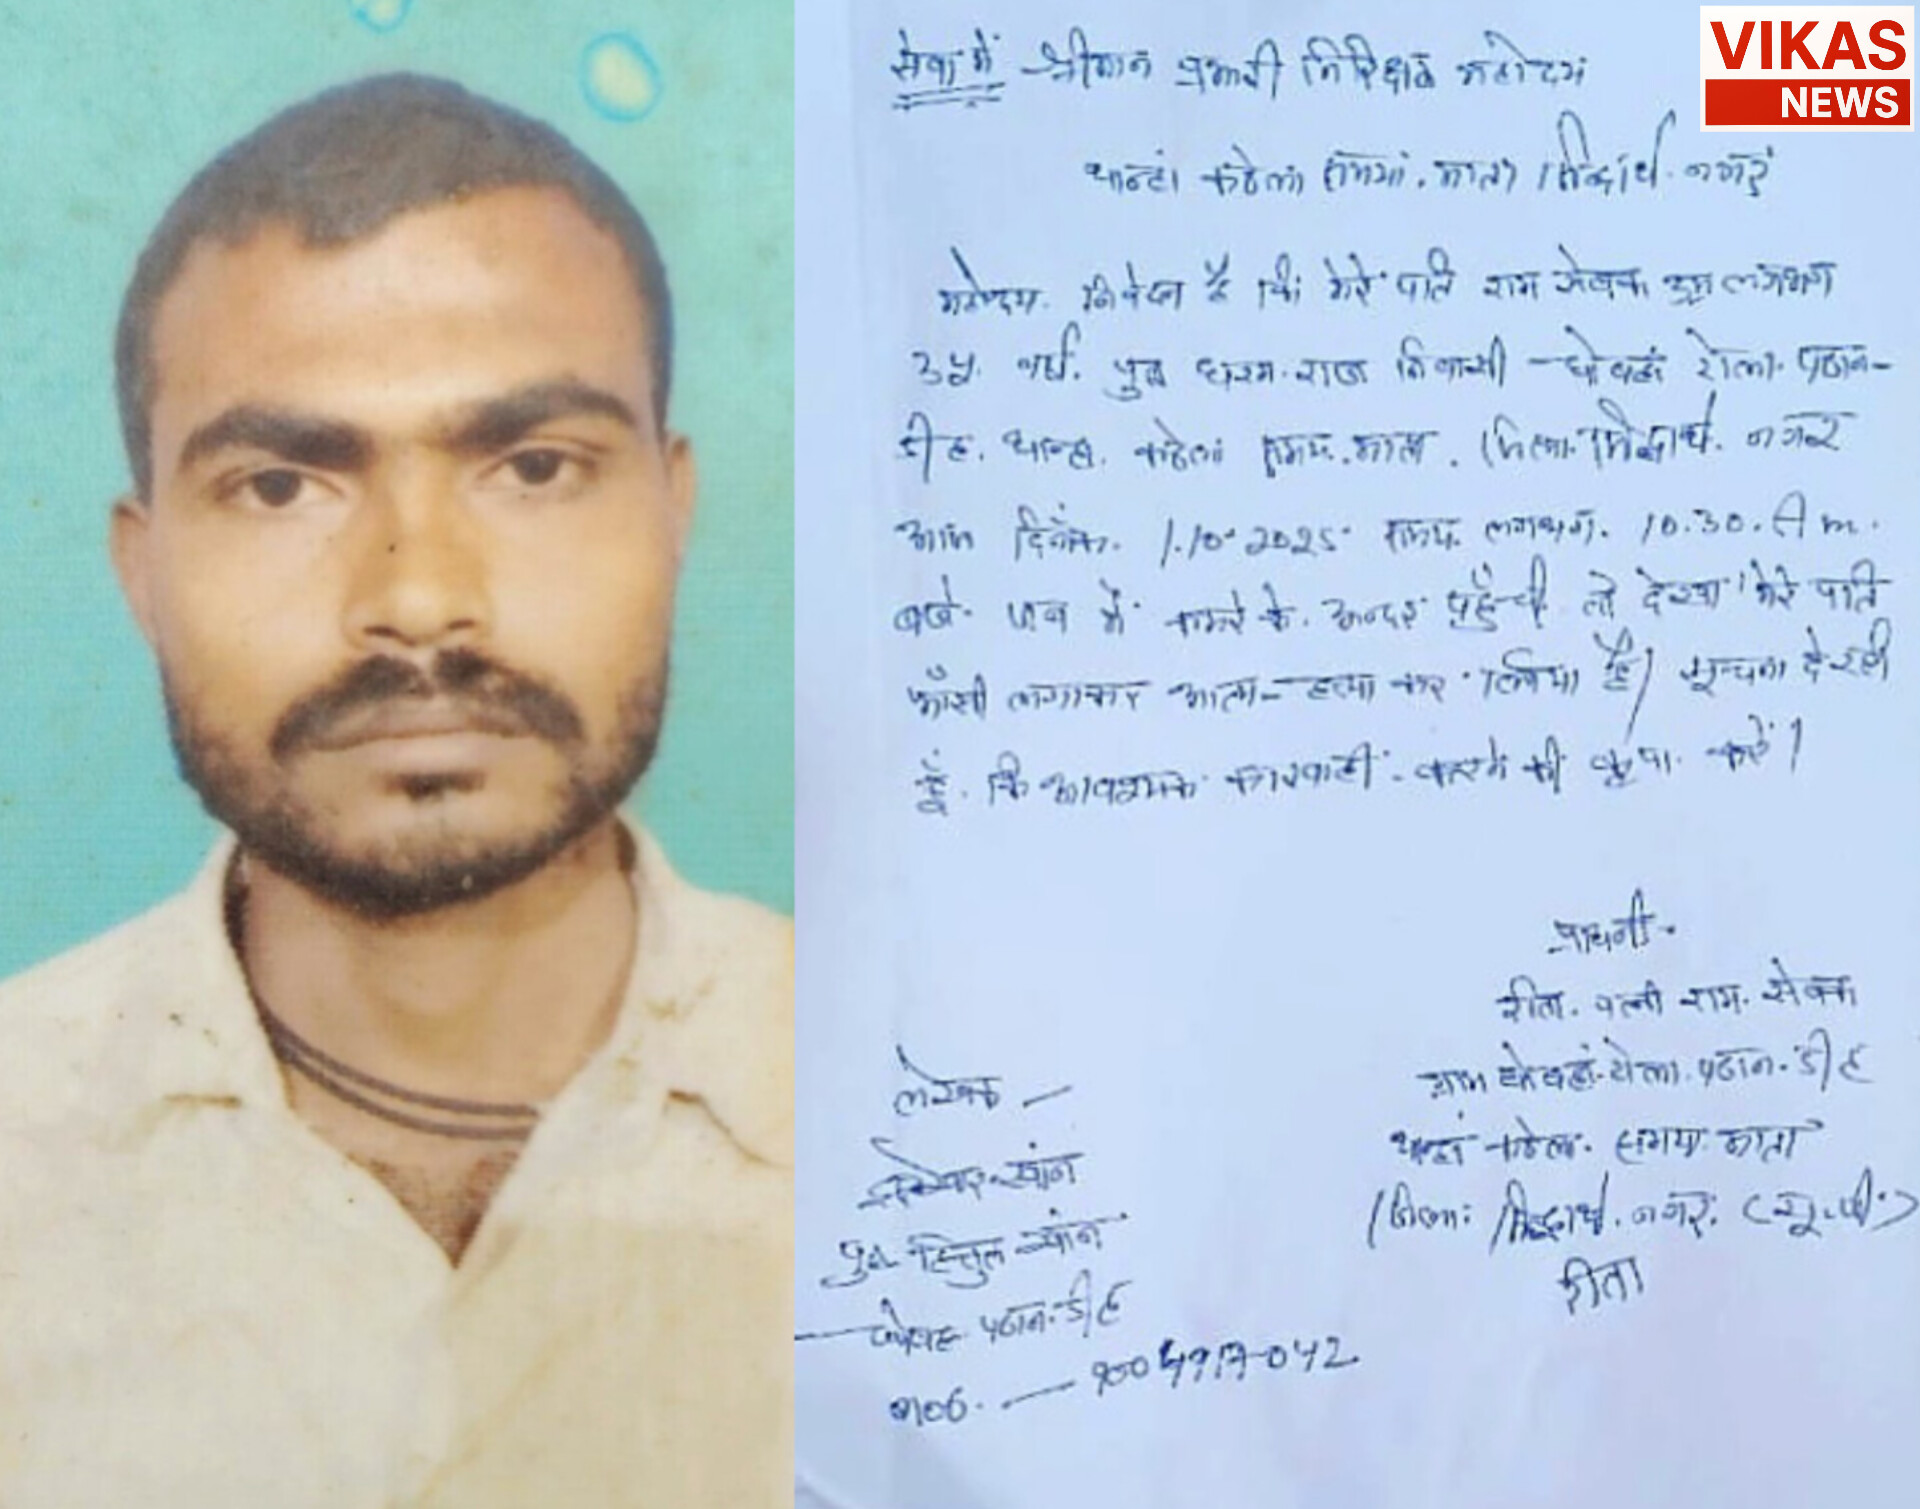 VIKAS
NEWS
सेवा में श्रीमान प्रभारी निरिक्षक महोदय
थान्हा कठेला समया माता सिद्धार्थ नगर
महोदय निवेदन है कि मेरे पति राम सेवक उम्र लगभग
35 वर्ष पुत्र धरम राज निवासी टोला पठान-
डीह थान्हा कठेला समय माता जिला सिद्धार्थ नगर
आज दिनांक 1.10.2025 समय लगभग 10.30. A m.
बजे जब में कमरे के अन्दर पहुँची तो देखा मेरे पति
फाँसी लगाकर आत्म-हत्या कर लिया है। सूचना दे रही
हूँ कि आवश्यक कारवाही करने की कृपा करें।
प्राथनी
रीता पत्नी राम सेवक
ग्राम टोला पठान डीह
थान्हा कठेला समया माता
जिला सिद्धार्थ नगर (यू.पी.)
रीता
लेखक
खांन
पुत्र खांन
पठान डीह